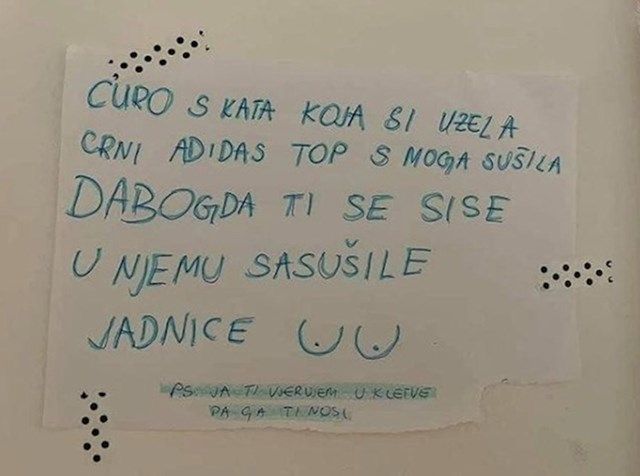 CURO S KATA KOJA SI UZELA
CRNI ADIDAS TOP S MOGA SUŠILA
DABOGDA TI SE SISE
U NJEMU SASUŠILE
JADNICE
PS. JA TI VJERUJEM U KLETVE
PA GA TI NOSI